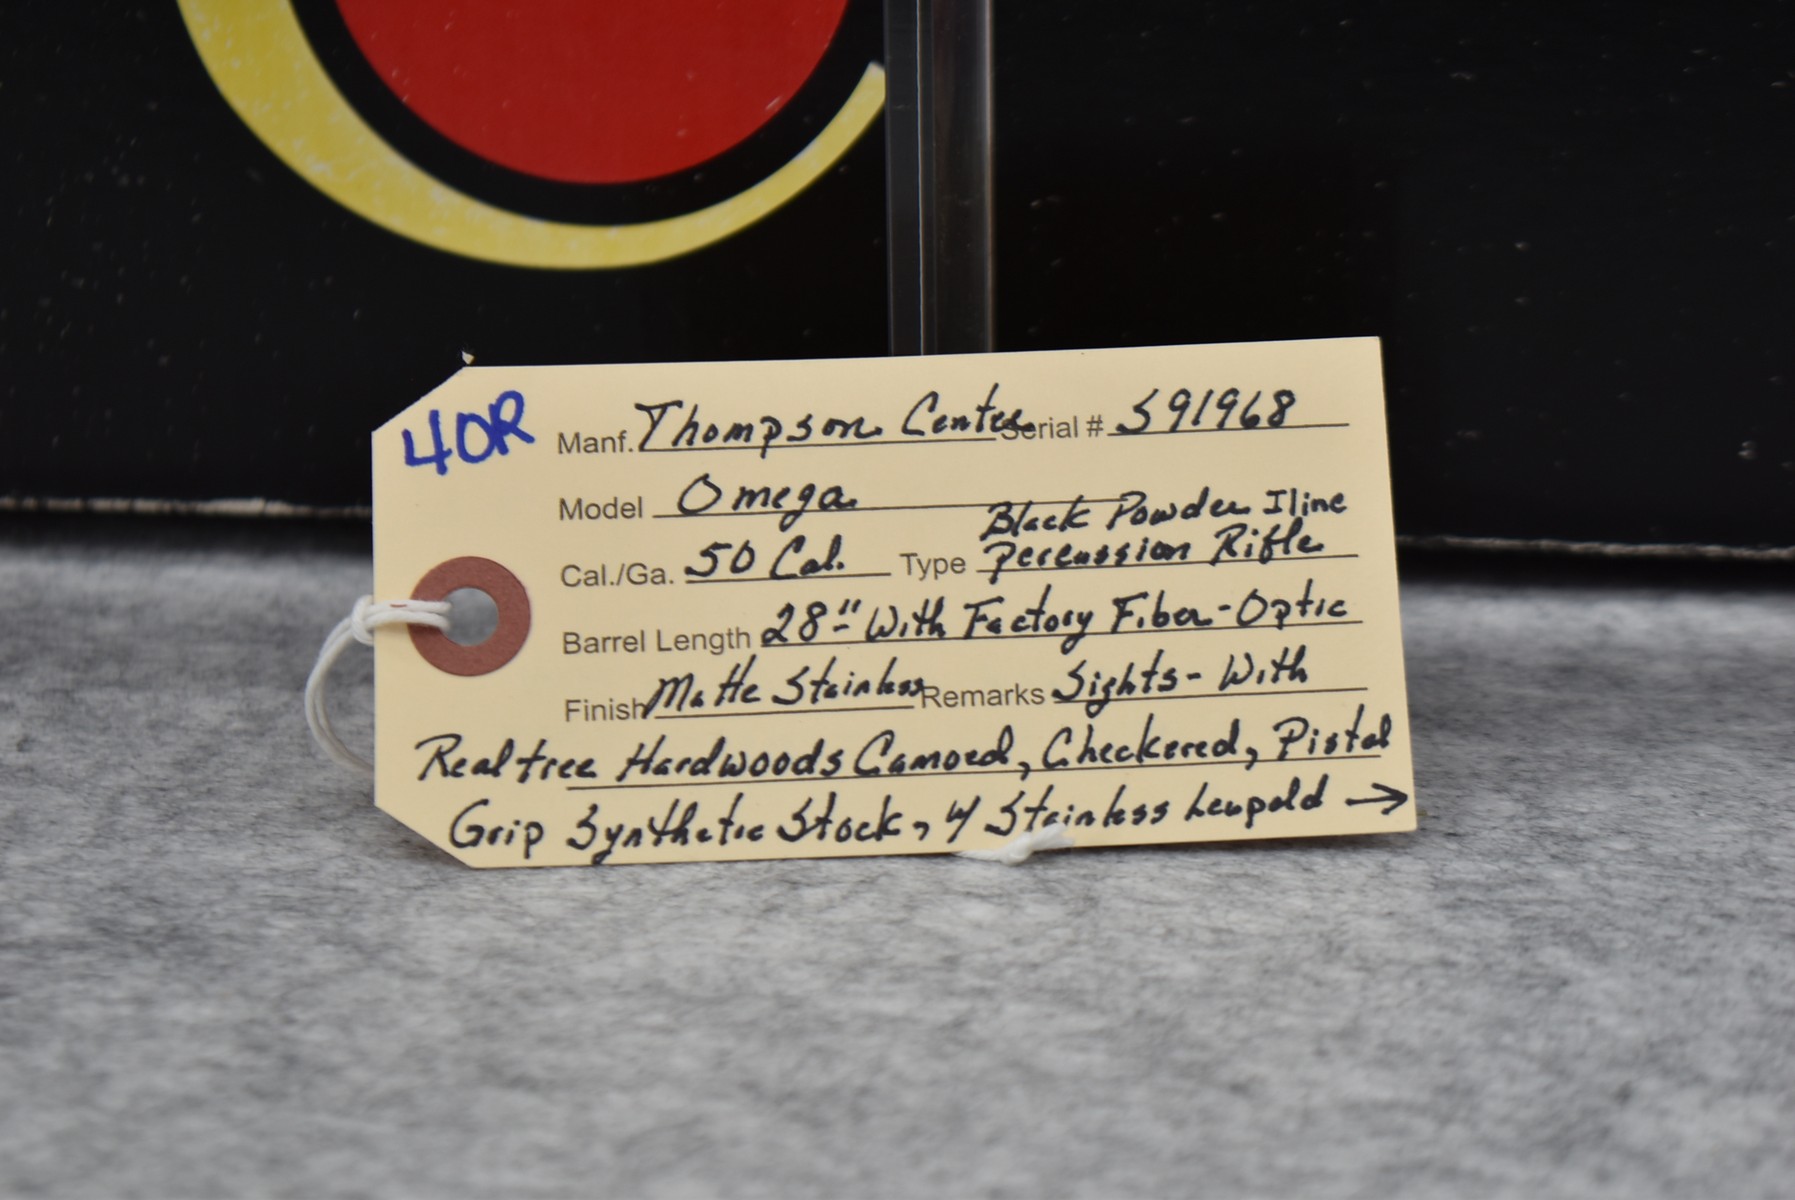 40R
Manf. Thompson Center Serial # S91968
Model Omega
Black Powder Iline
Cal./Ga. 50 Cal. Type Percussion Rifle
Barrel Length 28" With Factory Fiber-Optic
Finish Matte Stainless Remarks Sights - With
Realtree Hardwoods Camoed, Checkered, Pistol
Grip Synthetic Stock, w/ Stainless Leupold →